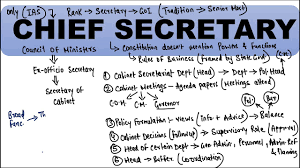 only (IAS) Rank → Secretary → GoI (Tradition → Senior Most
CHIEF SECRETARY
Council of Ministers
Constitution doesn't mention Powers & Functions
Rules of Business (framed by State Govt)
Ex-officio Secretary
Secretary of Cabinet
① Cabinet Secretariat Dept (Head) → Dept → Pol Head
② Cabinet Meetings → Agenda papers (Meetings attend)
Governor
③ Policy Formulation → Views (Info + Advice) → Balance
④ Cabinet Decisions (Followup) → Supervisory Role
⑤ Head of Certain Dept → Gen Admin, Personnel,
⑥ Head → Buffer (Coordination)
Broad Func →